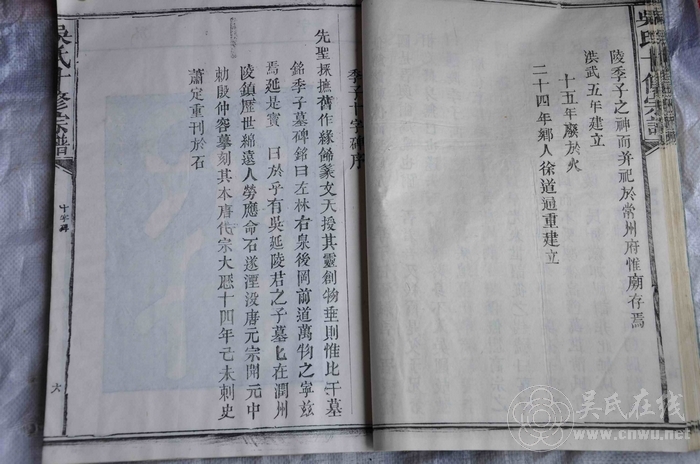 吳氏十修宗譜
陵季子之神而并祀於常州府惟廟存焉
洪武五年建立
十五年廢於火
二十四年鄉人徐道通重建立
季子十字碑序
先聖採撫舊作緣飾篆文天授其靈創物垂則惟比干墓
銘季子墓碑銘曰左林右泉後岡前道萬物之寧兹
焉延是實 曰於乎有吳延陵君之子墓匕在潤州
陵鎮歷世綿遠人勞應命石遂湮没唐元宗開元中
勅殷仲容摹刻其本唐代宗大曆十四年己未刺史
蕭定重刊於石
吳氏十修宗譜
十字碑
六
吴氏在线
www.cnwu.net